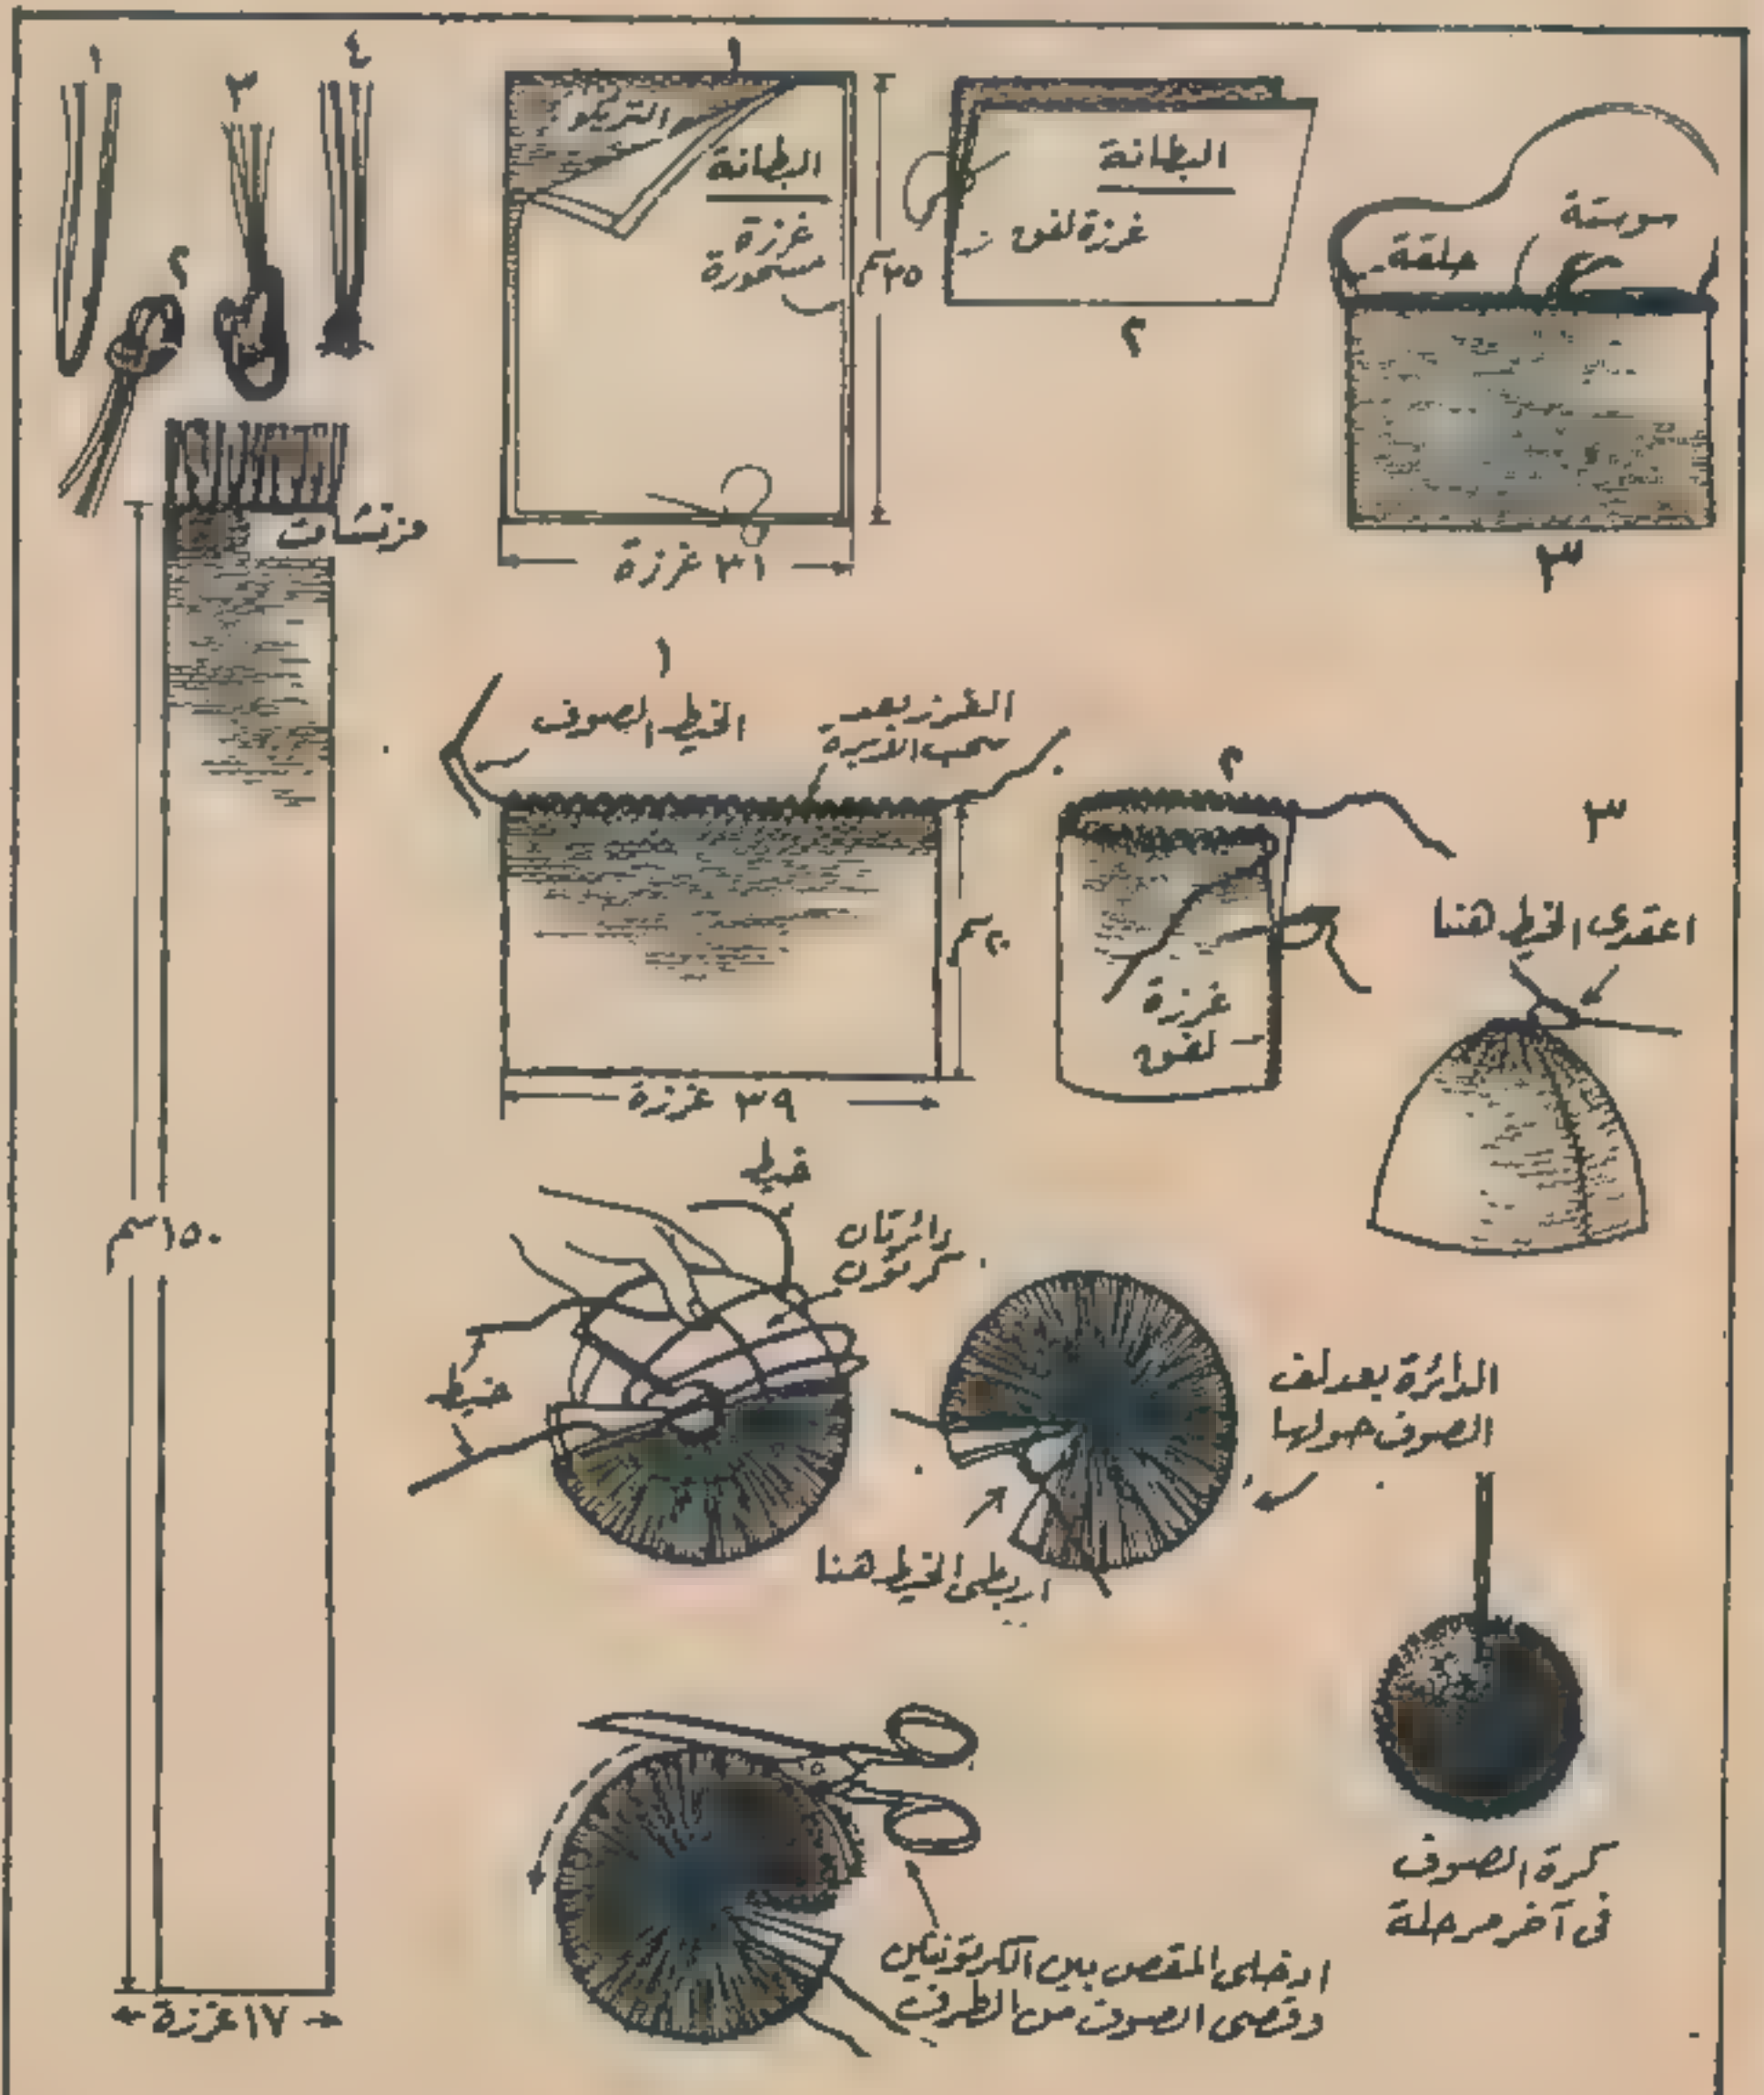 ١
٢
٣
٤
فرنشات
١٥٠ سم
١٧ غرزة
١
التريكو
البطانة
غرزة
مسحورة
٣٥ سم
٣١ غرزة
البطانة
غرزة لفق
٢
سوستة
حلقة
٣
١
الخيط الصوف
الغرز بعد
سحب الابرة
٢٠ سم
٣٩ غرزة
٢
غرزة
لفق
٣
اعقدى الخيط هنا
خيط
دائرتان
كرتون
خيط
الدائرة بعد لف
الصوف حولها
اربطى الخيط هنا
كرة الصوف
فى آخر مرحلة
ادخلى المقص بين الكرتونتين
وقصى الصوف من الطرف